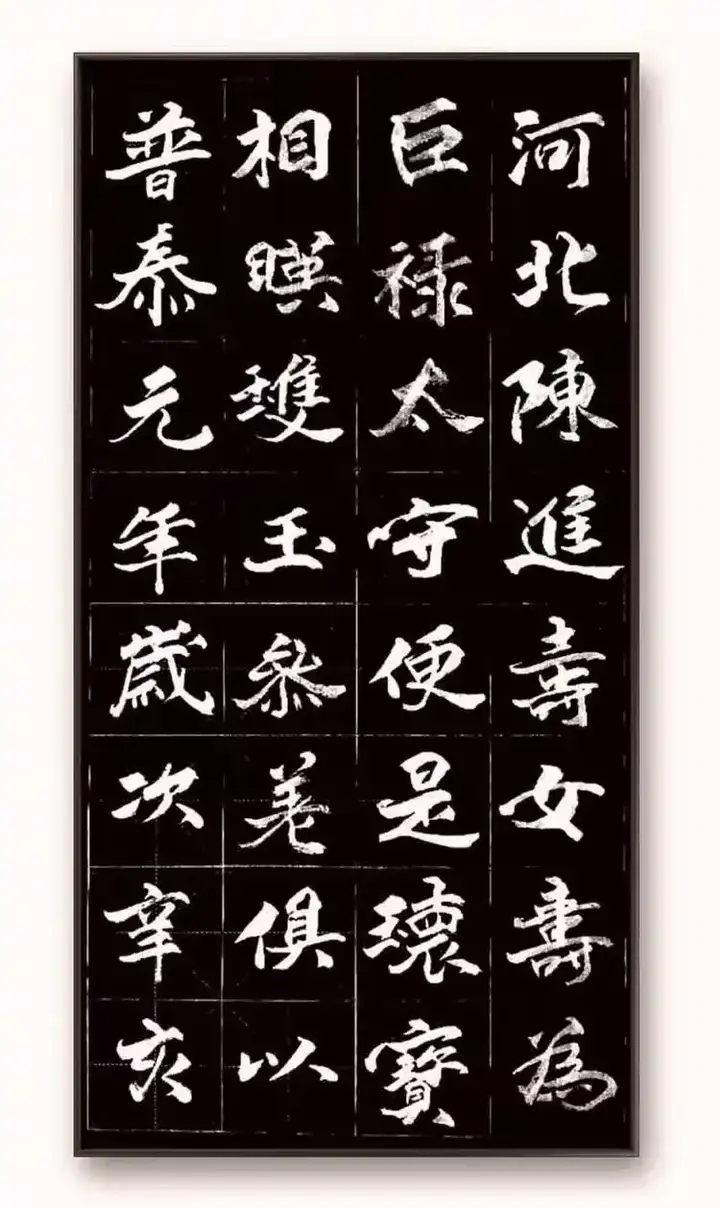 河北陳進壽女壽為
巨禄太守便是瓌寶
相暎雙玉叅差俱以
普泰元年歳次辛亥